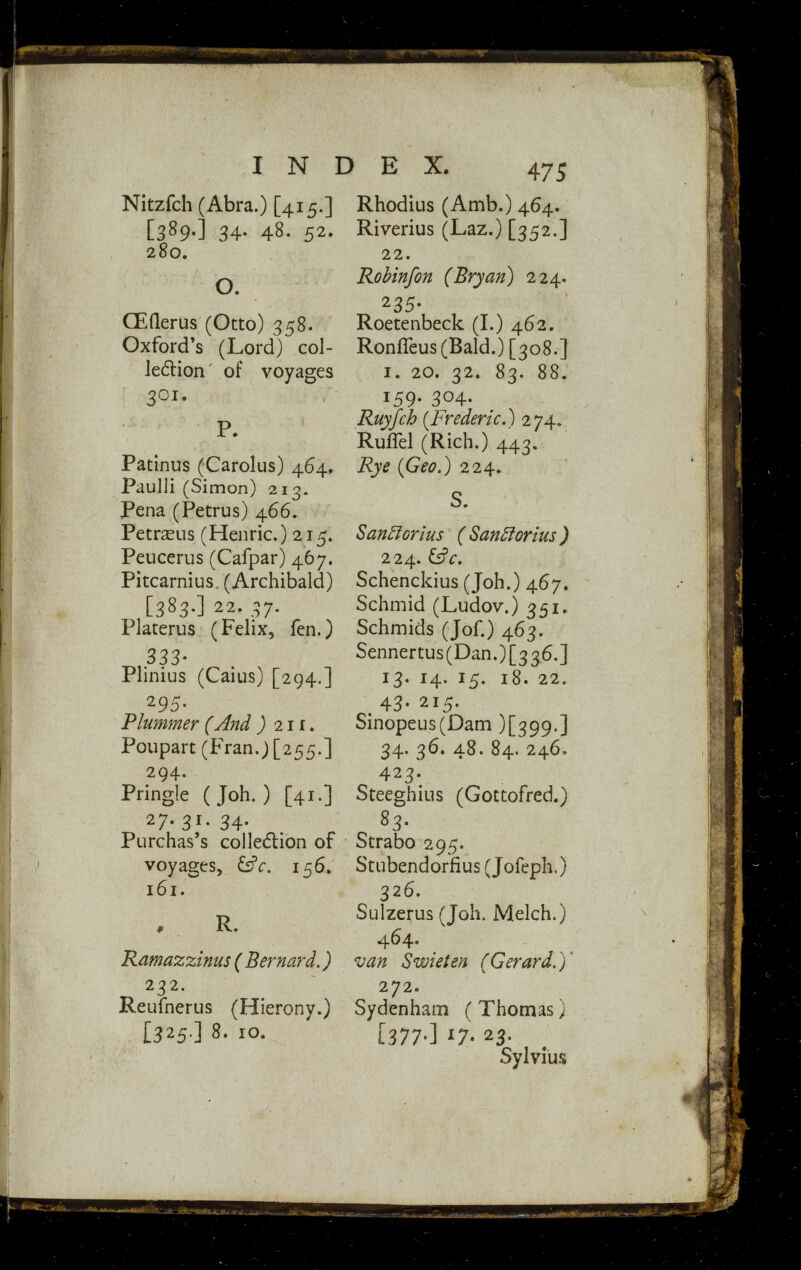 INDEX. 475
Nitzſch (Abra.) [415.]
[389.] 34. 48. 52.
280.
O.
Œſlerus (Otto) 358.
Oxford’s (Lord) col-
lection of voyages
301.
P.
Patinus (Carolus) 464.
Paulli (Simon) 213.
Pena (Petrus) 466.
Petræus (Henric.) 215.
Peucerus (Caſpar) 467.
Pitcarnius (Archibald)
[383.] 22. 37.
Platerus (Felix, ſen.)
333.
Plinius (Caius) [294.]
295.
Plummer (And ) 211.
Poupart (Fran.) [255.]
294.
Pringle ( Joh. ) [41.]
27. 31. 34.
Purchas’s collection of
voyages, &c. 156.
161.
R.
Ramazzinus (Bernard.)
232.
Reuſnerus (Hierony.)
[325.] 8. 10.
Rhodius (Amb.) 464.
Riverius (Laz.) [352.]
22.
Robinſon (Bryan) 224.
235.
Roetenbeck (I.) 462.
Ronſſeus (Bald.) [308.]
1. 20. 32. 83. 88.
159. 304.
Ruyſch (Frederic.) 274.
Ruſſel (Rich.) 443.
Rye (Geo.) 224.
S.
Sanctorius (Sanctorius)
224. &c.
Schenckius (Joh.) 467.
Schmid (Ludov.) 351.
Schmids (Joſ.) 463.
Sennertus (Dan.) [336.]
13. 14. 15. 18. 22.
43. 215.
Sinopeus (Dam ) [399.]
34. 36. 48. 84. 246.
423.
Steeghius (Gottofred.)
83.
Strabo 295.
Stubendorfius (Joſeph.)
326.
Sulzerus (Joh. Melch.)
464.
van Swieten (Gerard.)
272.
Sydenham (Thomas)
[377.] 17. 23.
Sylvius